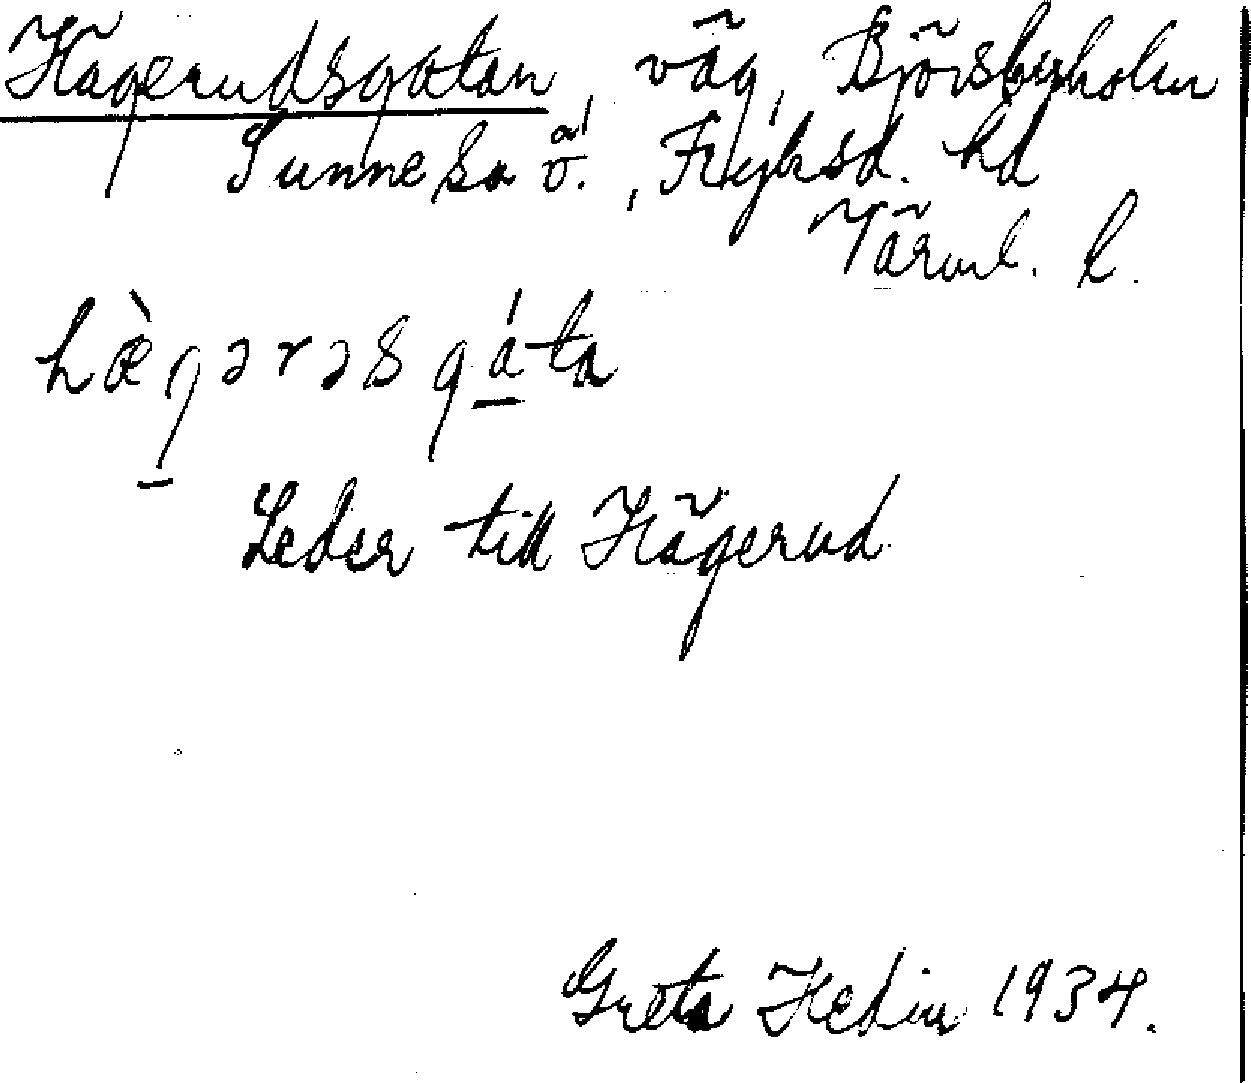 Hägerudsgatan, väg, Björsbyholm
Sunne sn ö., Fryksd. hd
Värml. l.
hæ̀gərəsgáta
Leder till Hägerud
Greta Hedin 1934.